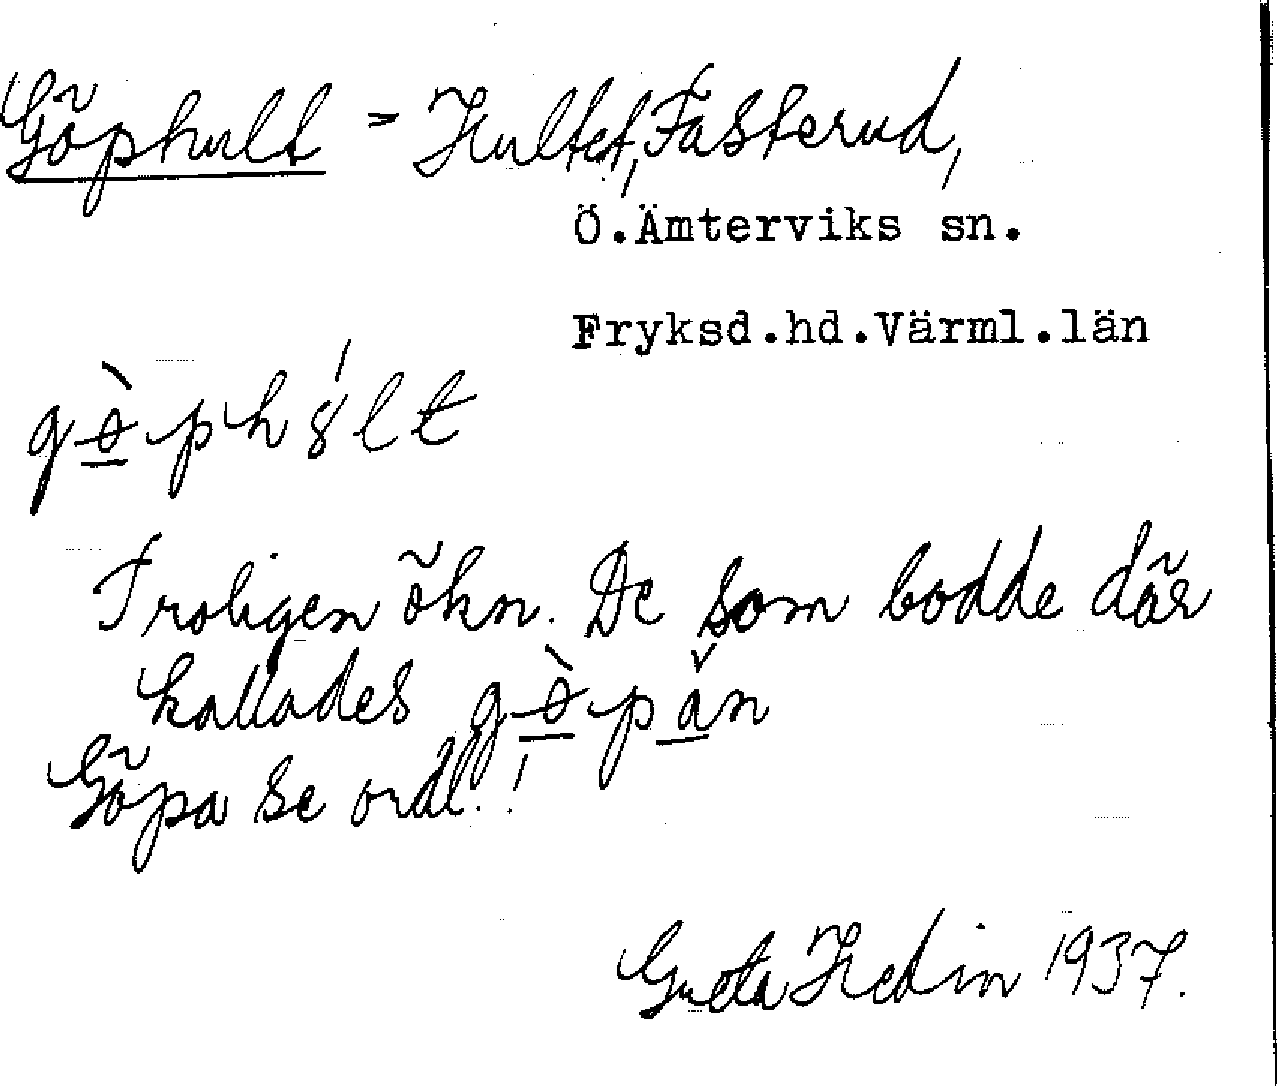 Göphult = Hultet, Fasterud,
Ö.Ämterviks sn.
Fryksd.hd.Värml.län
Troligen ökn. De som bodde där
kallades
Göpa se ordl.!
Greta Hedin 1937.